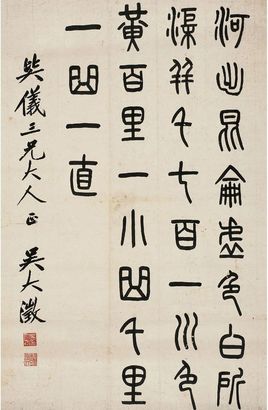 河出昆侖虛色白所
渠并千七百一川色
黃百里一小曲千里
一曲一直
儀三兄大人正 吳大澂